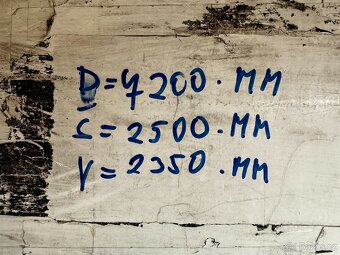 D=4200.MM
Š=2500.MM
V=2350.MM